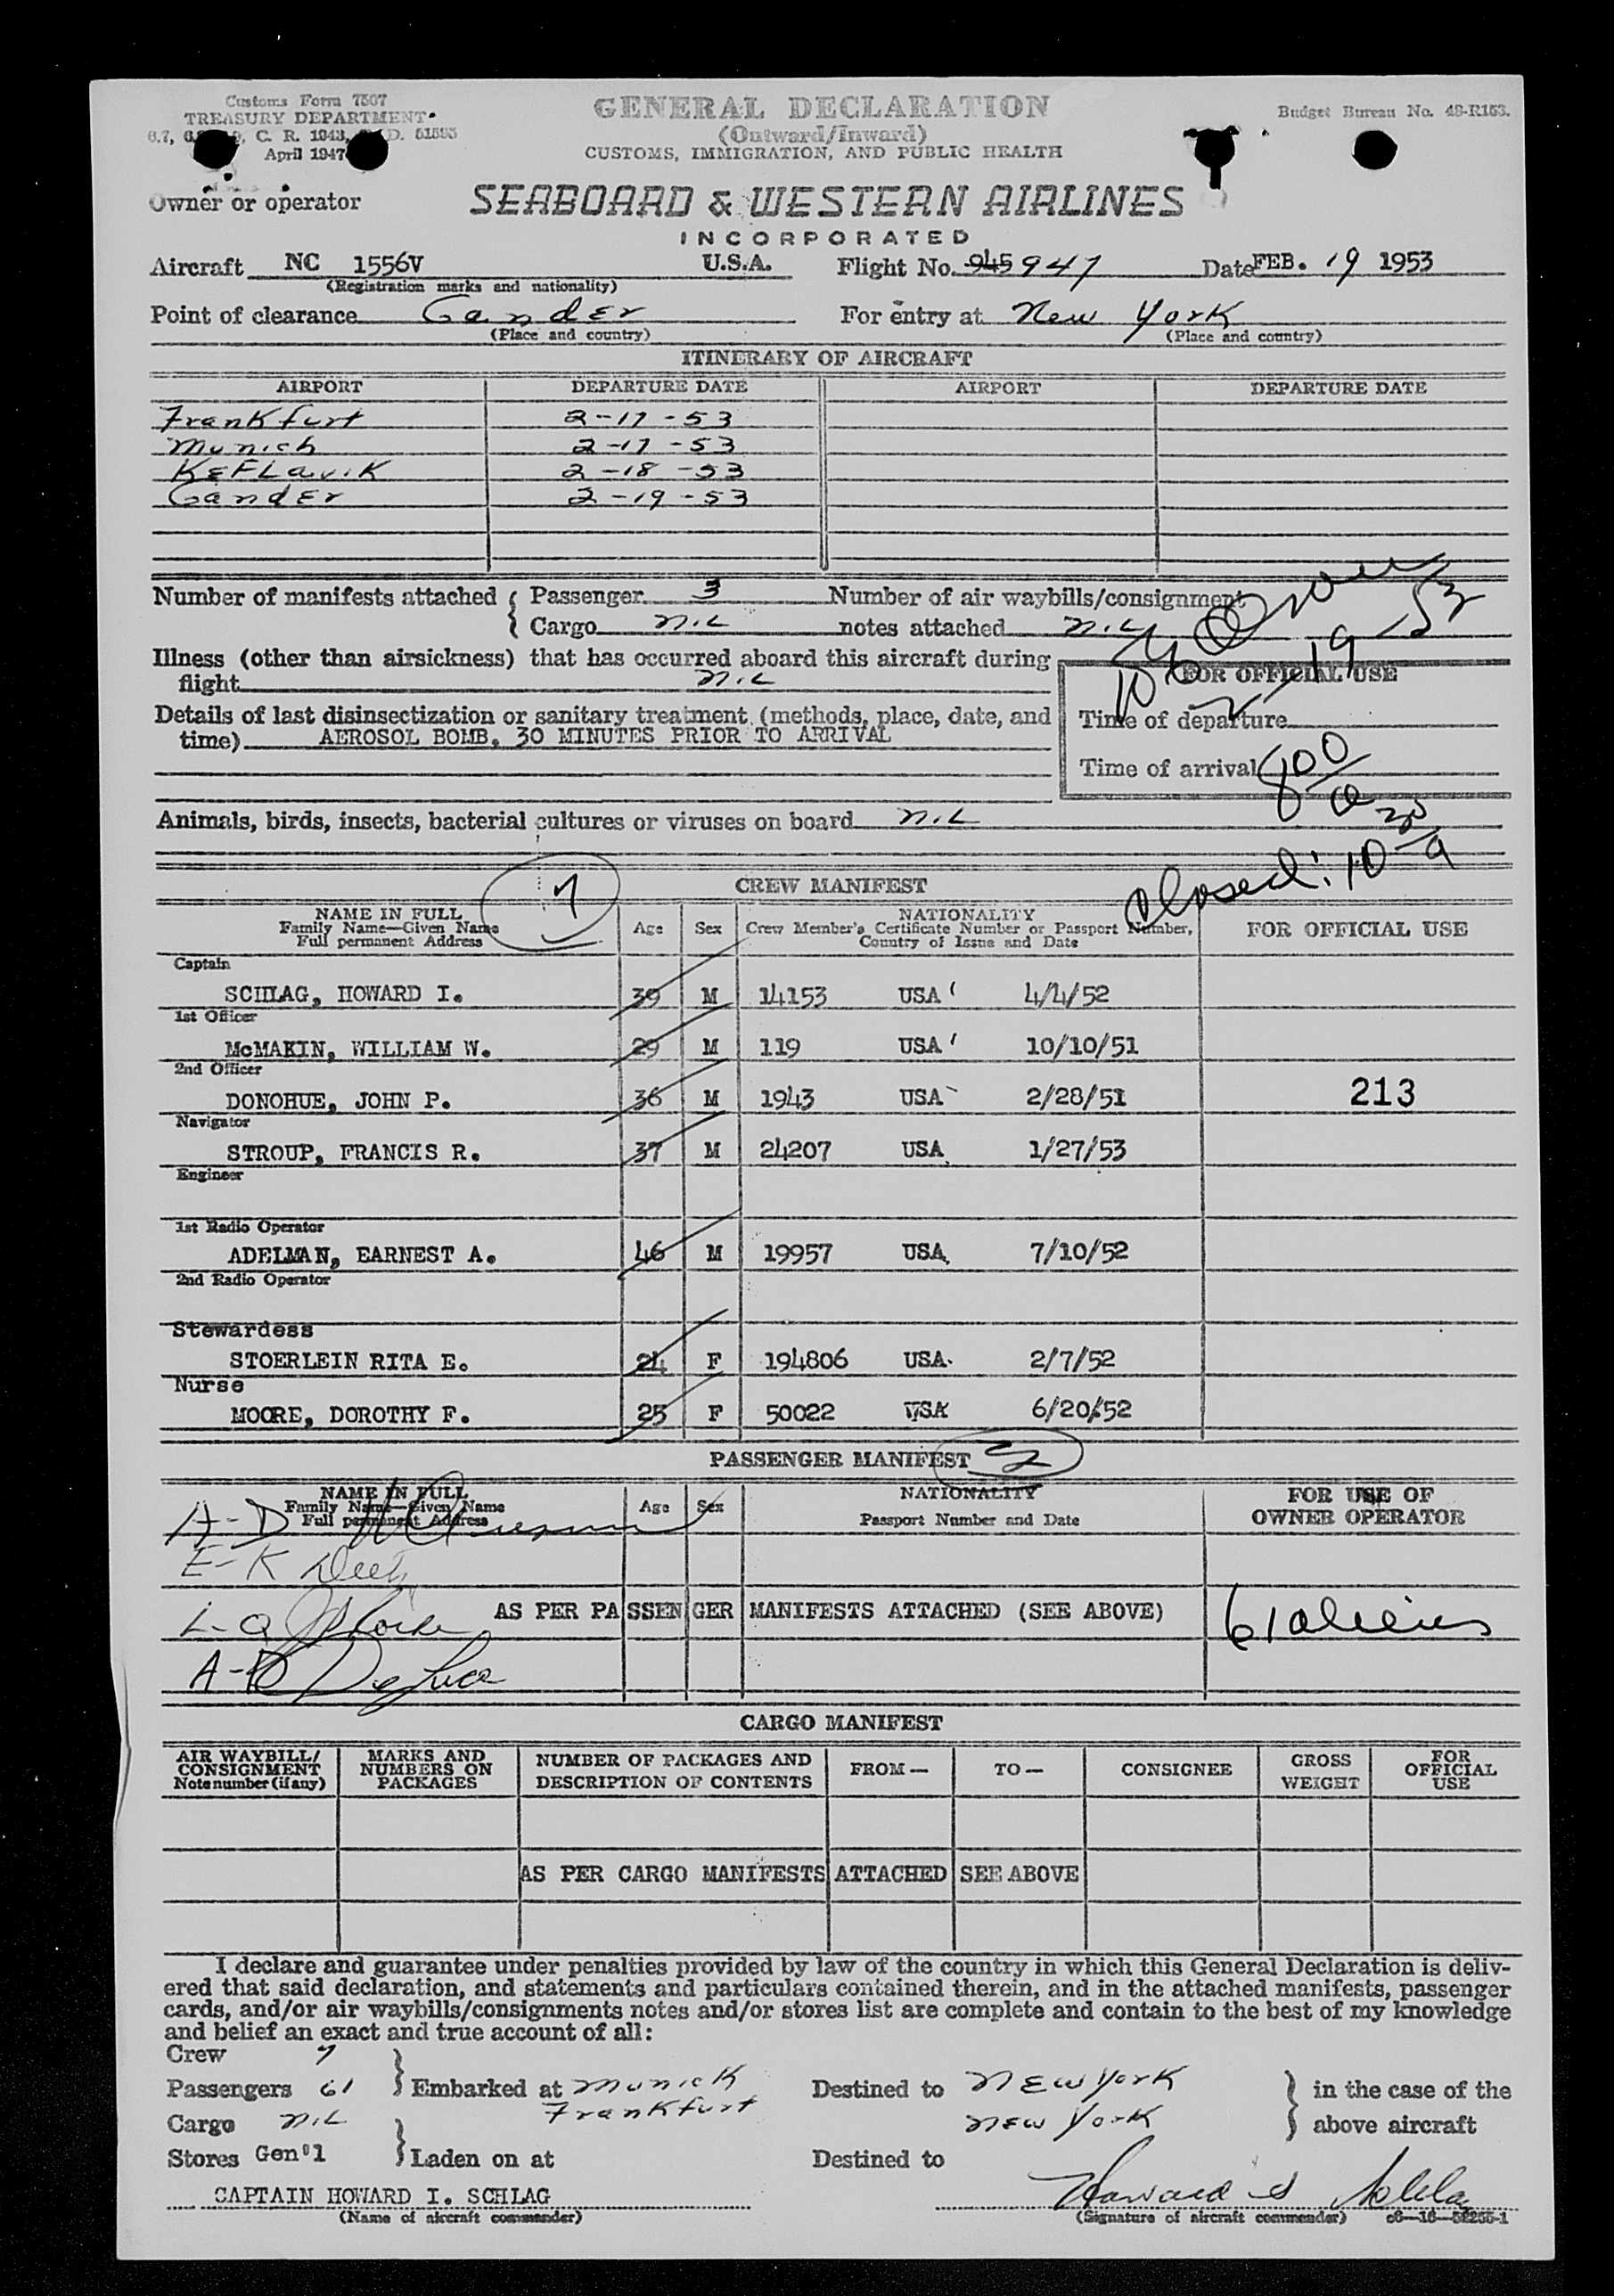 Customs Form 7507
TREASURY DEPARTMENT
C. R. 1943, D. 51595
April 1947
GENERAL DECLARATION
(Outward/Inward)
CUSTOMS, IMMIGRATION, AND PUBLIC HEALTH
Budget Bureau No. 48-R153.
Owner or operator SEABOARD & WESTERN AIRLINES
INCORPORATED
Aircraft NC 1556V U.S.A. Flight No. 945 947 Date FEB. 19 1953
(Registration marks and nationality)
Point of clearance Gander For entry at New York
(Place and country) (Place and country)
ITINERARY OF AIRCRAFT
AIRPORT DEPARTURE DATE AIRPORT DEPARTURE DATE
Frankfurt 2-17-53
Munich 2-17-53
KEFLaviK 2-18-53
GandEr 2-19-53
Number of manifests attached { Passenger 3 Number of air waybills/consignment
Cargo NiL notes attached NiL
2-19-53
Illness (other than airsickness) that has occurred aboard this aircraft during
flight NiL
FOR OFFICIAL USE
Details of last disinsectization or sanitary treatment (methods, place, date, and
time) AEROSOL BOMB, 30 MINUTES PRIOR TO ARRIVAL
Time of departure
Time of arrival 800 a
Animals, birds, insects, bacterial cultures or viruses on board NiL
Closed: 10 30 a
7
CREW MANIFEST
NAME IN FULL
Family Name—Given Name
Full permanent Address
Age Sex
NATIONALITY
Crew Member's Certificate Number or Passport Number,
Country of Issue and Date
FOR OFFICIAL USE
Captain
SCHLAG, HOWARD I. 39 M 14153 USA 4/4/52
1st Officer
McMAKIN, WILLIAM W. 29 M 119 USA 10/10/51
2nd Officer
DONOHUE, JOHN P. 36 M 1943 USA 2/28/51 213
Navigator
STROUP, FRANCIS R. 37 M 24207 USA 1/27/53
Engineer
1st Radio Operator
ADELMAN, EARNEST A. 46 M 19957 USA 7/10/52
2nd Radio Operator
Stewardess
STOERLEIN RITA E. 24 F 194806 USA 2/7/52
Nurse
MOORE, DOROTHY F. 25 F 50022 USA 6/20/52
PASSENGER MANIFEST
NAME IN FULL
Family Name—Given Name
Full permanent Address
Age Sex
NATIONALITY
Passport Number and Date
FOR USE OF
OWNER OPERATOR
A-D
E-K
L-Q AS PER PASSENGER MANIFESTS ATTACHED (SEE ABOVE) 61 aliens
CARGO MANIFEST
AIR WAYBILL/
CONSIGNMENT
Note number (if any)
MARKS AND
NUMBERS ON
PACKAGES
NUMBER OF PACKAGES AND
DESCRIPTION OF CONTENTS
FROM— TO— CONSIGNEE
GROSS
WEIGHT
FOR
OFFICIAL
USE
AS PER CARGO MANIFESTS ATTACHED SEE ABOVE
I declare and guarantee under penalties provided by law of the country in which this General Declaration is deliv-
ered that said declaration, and statements and particulars contained therein, and in the attached manifests, passenger
cards, and/or air waybills/consignments notes and/or stores list are complete and contain to the best of my knowledge
and belief an exact and true account of all:
Crew 7
Passengers 61 } Embarked at Munich Destined to NEW York } in the case of the
Frankfurt NEW York
Cargo NiL above aircraft
Stores Gen'l } Laden on at Destined to
CAPTAIN HOWARD I. SCHLAG Howard I Schlag
(Name of aircraft commander) (Signature of aircraft commander) c6—16—52255-1